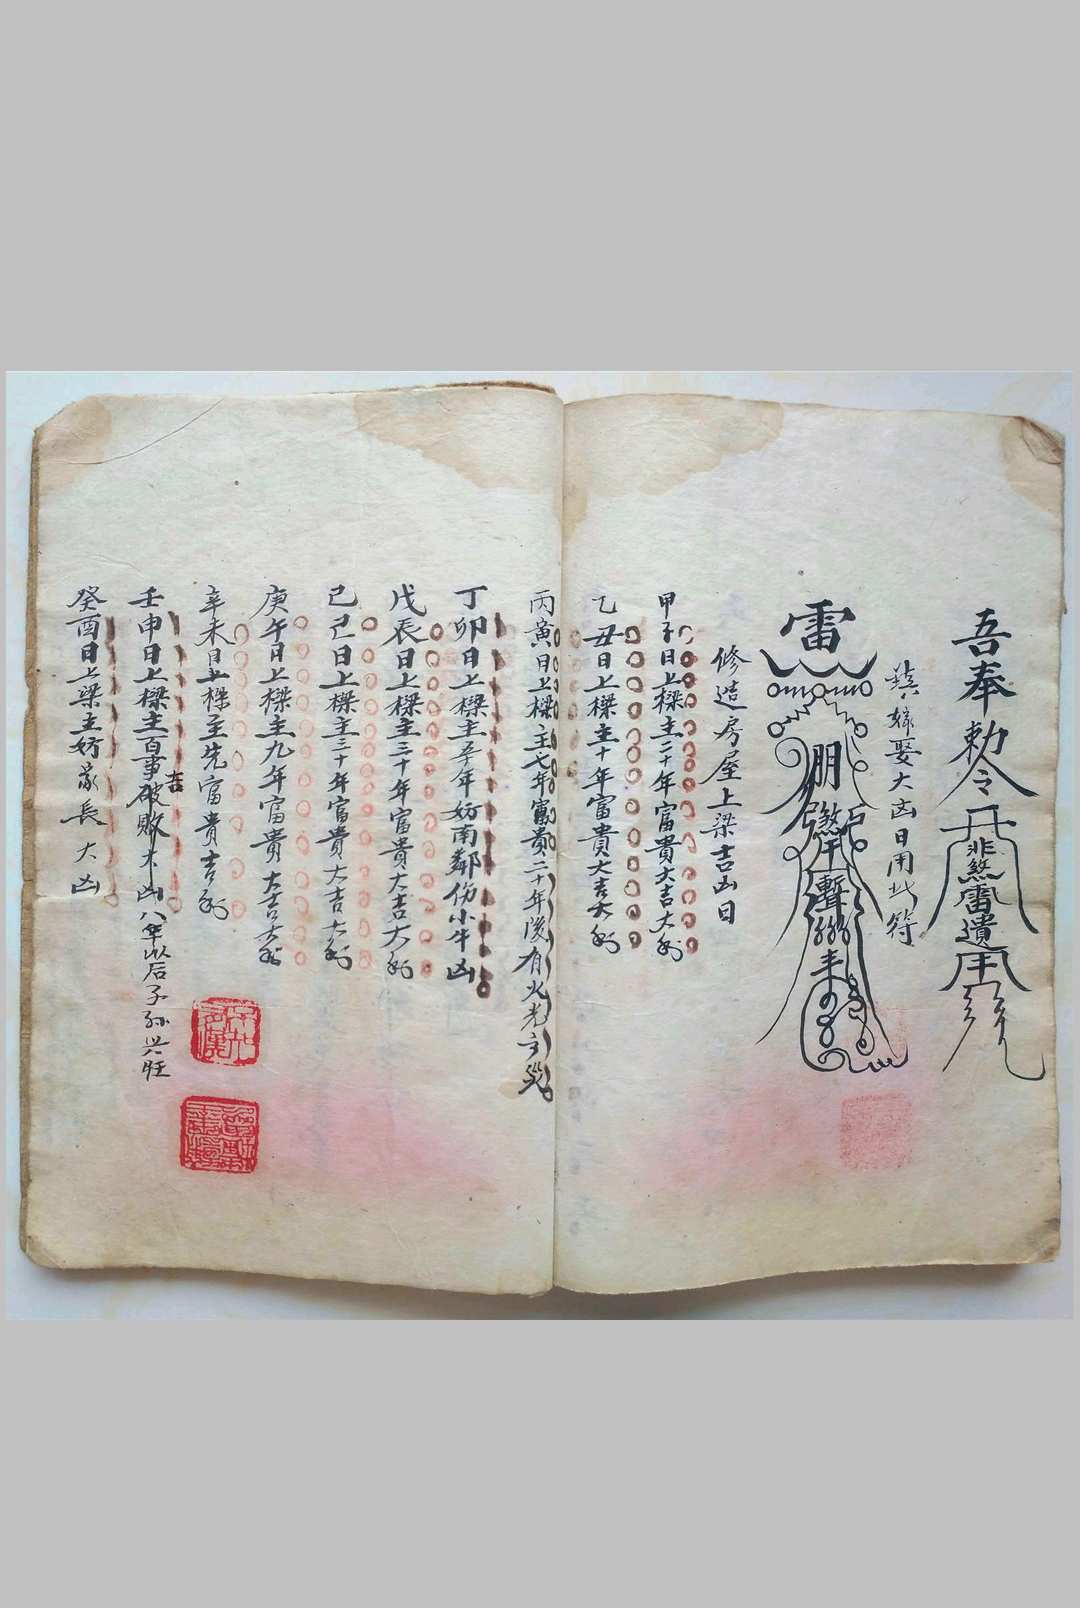 吾奉勅令
非煞雷遣
鎮嫁娶大凶日用此符
雷
修造房屋上梁吉凶日
甲子日上樑主二十年富貴大吉大利
乙丑日上樑主十年富貴大吉大利
丙寅日上樑主七年富貴二十年後有火光之災
丁卯日上樑主五年妨南鄰伤小牛凶
戊辰日上樑主三十年富貴大吉大利
己巳日上樑主三十年富貴大吉大利
庚午日上樑主九年富貴大吉大利
辛未日上樑主先富貴吉利
壬申日上樑主百事吉破敗大凶八年以后子孙兴旺
癸酉日上梁主妨家長大凶